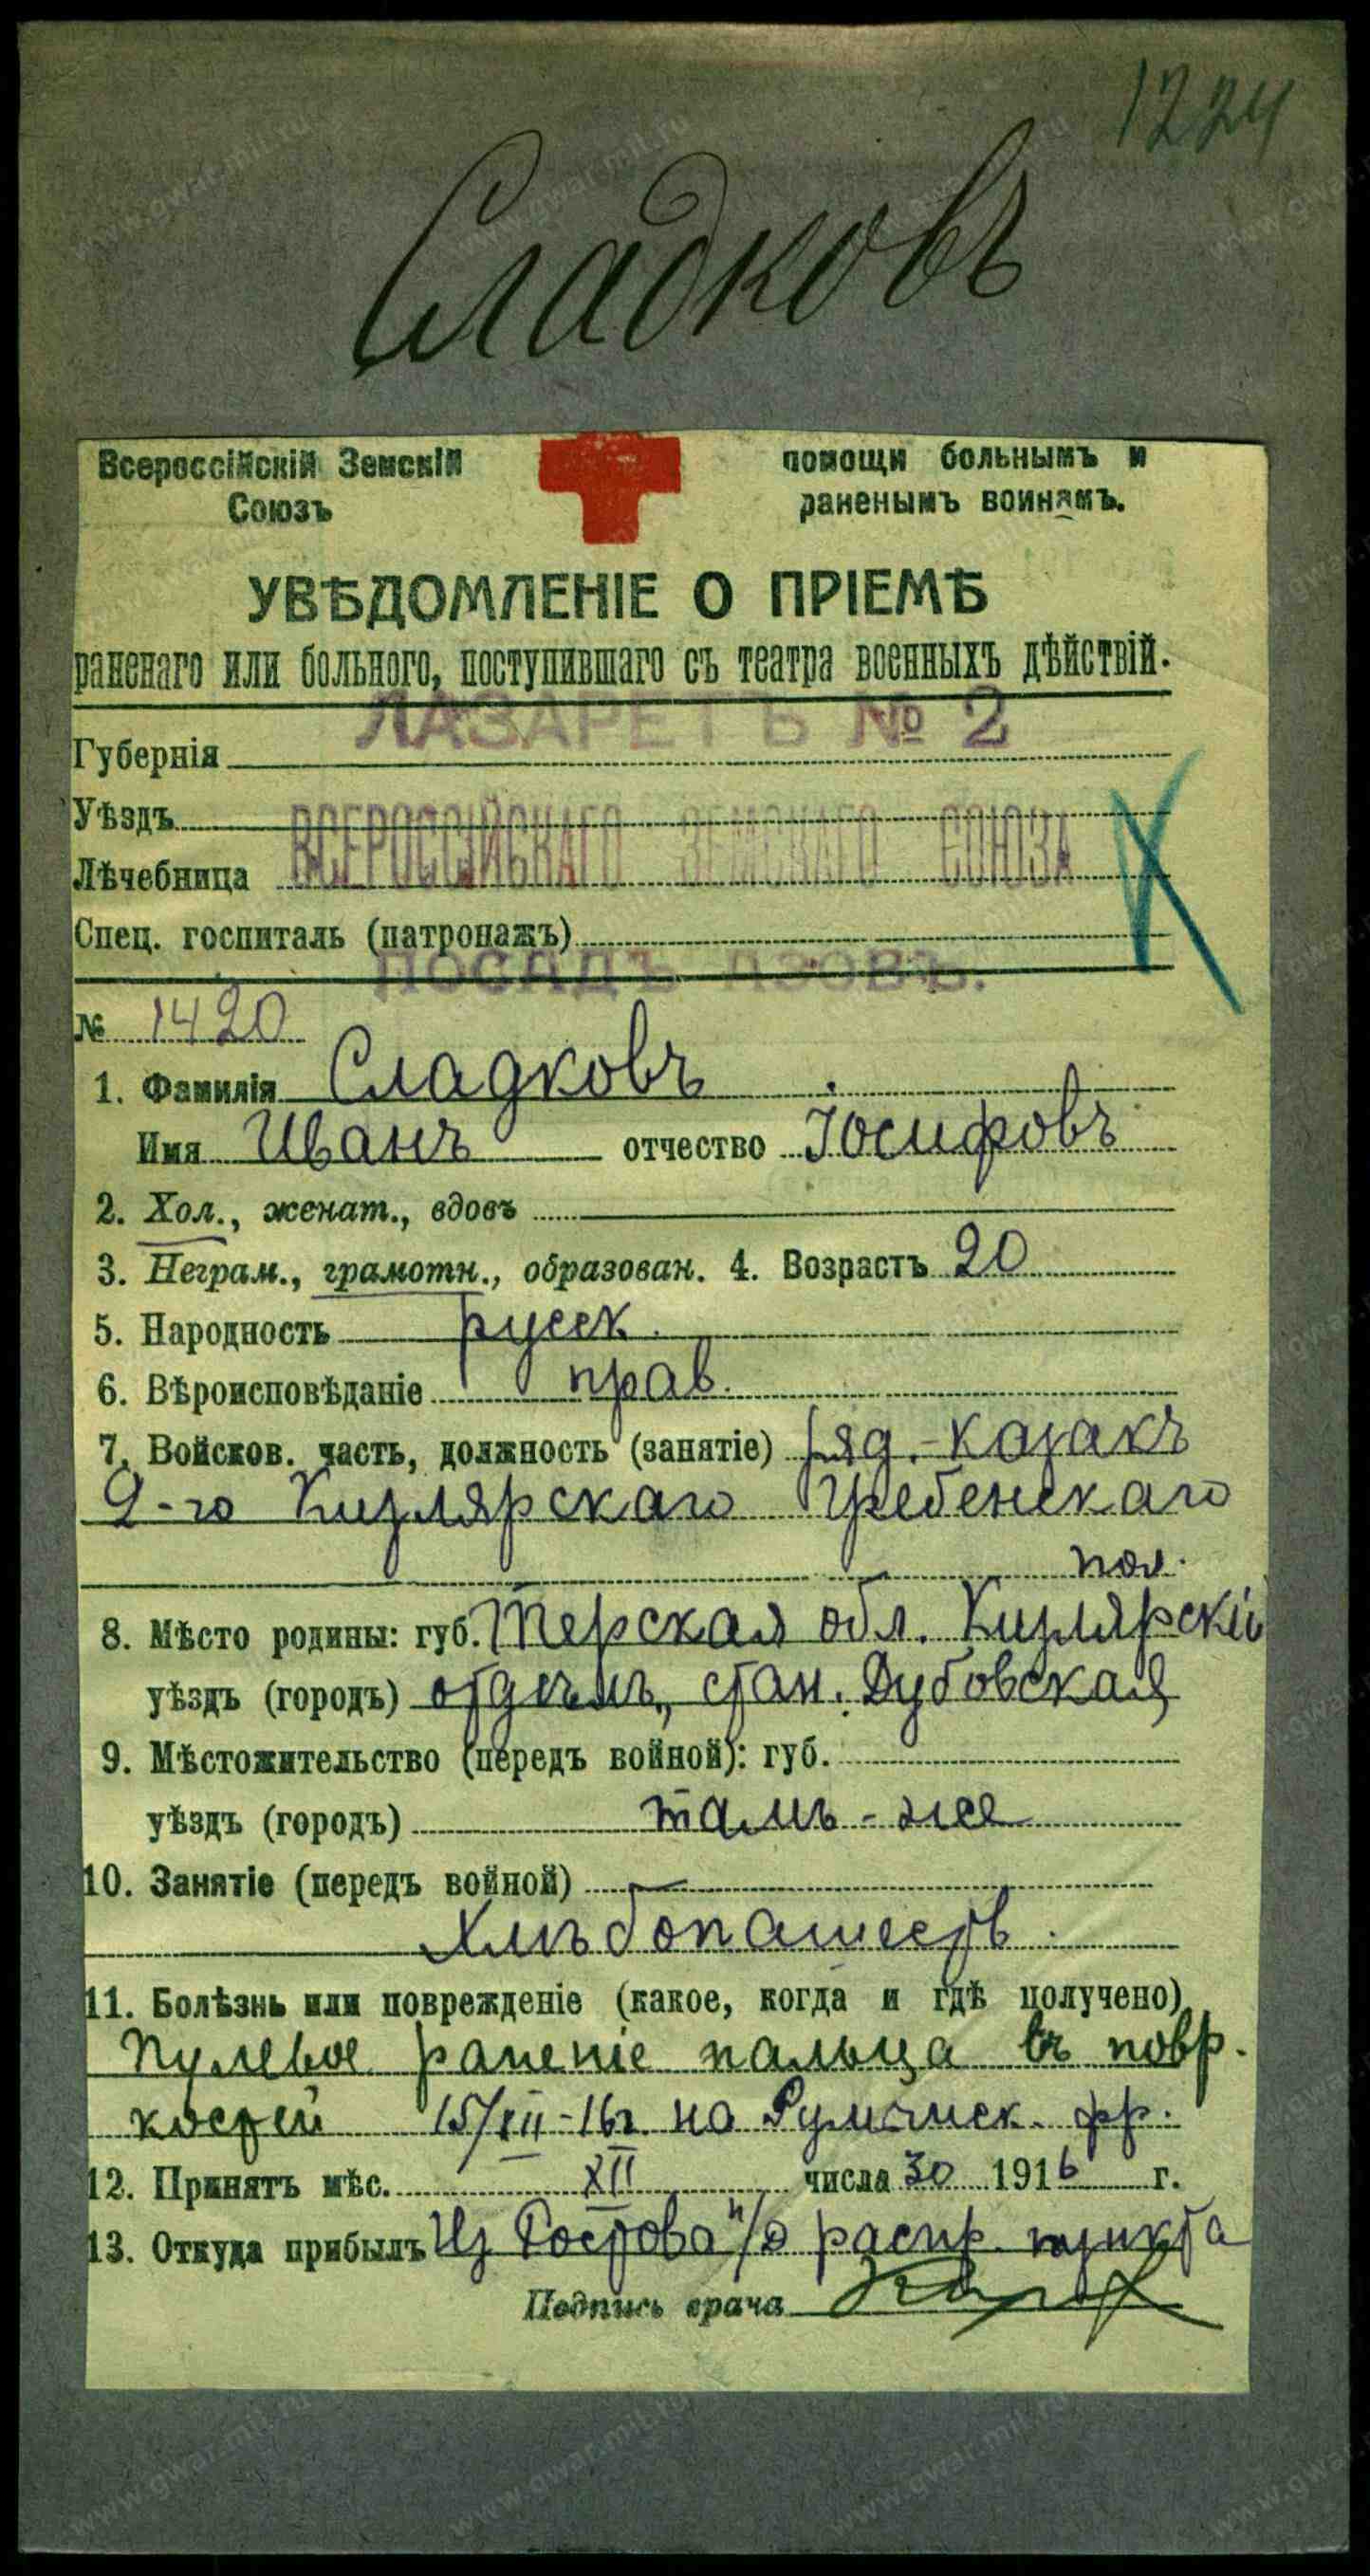 1224
Сладковъ
Всероссійскій Земскій
Союзъ
помощи больнымъ и
раненымъ воинамъ.
УВѢДОМЛЕНІЕ О ПРІЕМѢ
раненаго или больного, поступившаго съ театра военныхъ дѣйствій.
ЛАЗАРЕТЪ № 2
Губернія
Уѣздъ
ВСЕРОССІЙСКАГО ЗЕМСКАГО СОЮЗА
Лѣчебница
Спец. госпиталь (патронажъ)
ПОСАДЪ АЗОВЪ.
№ 1420
1. Фамилія Сладковъ
Имя Иванъ отчество Іосифовъ
2. Хол., женат., вдовъ
3. Неграм., грамотн., образован. 4. Возрастъ 20
5. Народность русск.
6. Вѣроисповѣданіе прав.
7. Войсков. часть, должность (занятіе) ряд.-казакъ
2-го Кизлярскаго Гребенскаго
пол.
8. Мѣсто родины: губ. Терская обл. Кизлярскій
уѣздъ (городъ) отдѣлъ, стан. Дубовская
9. Мѣстожительство (передъ войной): губ.
уѣздъ (городъ) тамъ-же
10. Занятіе (передъ войной)
Хлѣбопашеств.
11. Болѣзнь или поврежденіе (какое, когда и гдѣ получено)
Пулевое раненіе пальца съ повр.
костей 15/XII-16г. на Румынск. фр.
12. Принятъ мѣс. XII числа 30 1916 г.
13. Откуда прибылъ Из Ростова н/Д распр. пункта
Подпись врача
www.gwar.mil.ru